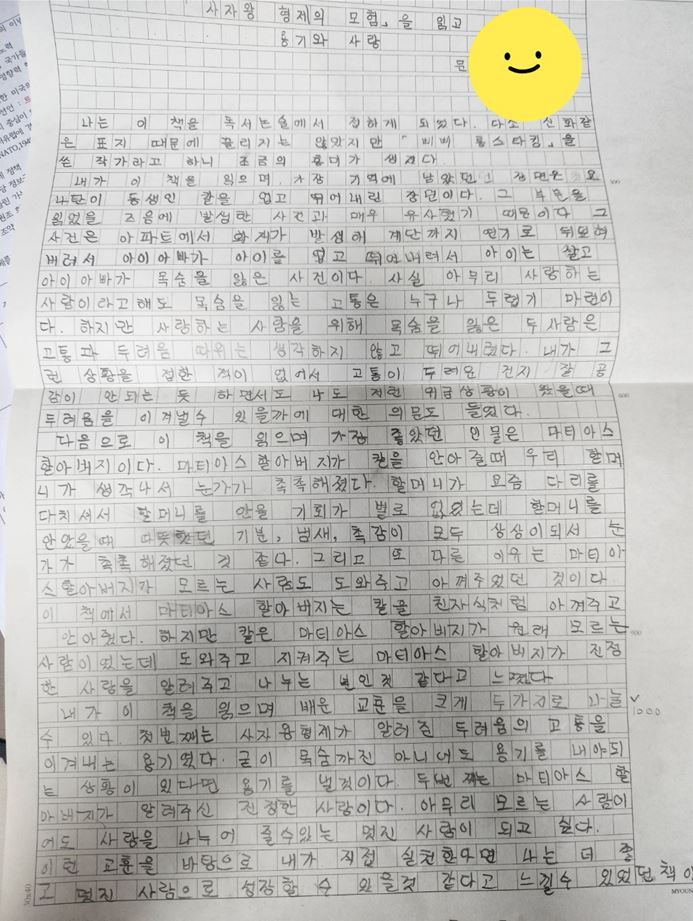 사자왕 형제의 모험」을 읽고
용기와 사랑
문
나는 이 책을 독서논술에서 접하게 되었다. 다소 신화같
은 표지 때문에 끌리지는 않았지만 「삐삐 롱스타킹」을
쓴 작가라고 하니 조금의 흥미가 생겼다.
내가 이 책을 읽으며, 가장 기억에 남았던 장면은 요
나탄이 동생인 칼을 업고 뛰어내린 장면이다. 그 부분을
읽었을 즈음에 발생한 사건과 매우 유사했기 때문이다. 그
사건은 아파트에서 화재가 발생해 계단까지 연기로 뒤덮여
버려서 아이아빠가 아이를 업고 뛰어내려서 아이는 살고
아이아빠가 목숨을 잃은 사건이다. 사실 아무리 사랑하는
사람이라고해도 목숨을 잃는 고통은 누구나 두렵기 마련이
다. 하지만 사랑하는 사람을 위해 목숨을 잃은 두사람은
고통과 두려움 따위는 생각하지 않고 뛰어내렸다. 내가 그
런 상황을 접한 적이 없어서 고통이 두려운 건지 잘 공
감이 안되는 듯 하면서도 나도 저런 위급상황이 왔을때
두려움을 이겨낼수 있을까에 대한 의문도 들었다.
다음으로 이 책을 읽으며 가장 좋았던 인물은 마티아스
할아버지이다. 마티아스 할아버지가 칼을 안아줄때 우리 할머
니가 생각나서 눈가가 촉촉해졌다. 할머니가 요즘 다리를
다치셔서 할머니를 안을 기회가 별로 없었는데 할머니를
안았을때 따뜻했던 기분, 냄새, 촉감이 모두 상상이되서 눈
가가 촉촉해졌던 것 같다. 그리고 또 다른 이유는 마티아
스할아버지가 모르는 사람도 도와주고 아껴주었던 것이다.
이 책에서 마티아스 할아버지는 칼을 친자식처럼 아껴주고
안아줬다. 하지만 칼은 마티아스 할아버지가 원래 모르는
사람이었는데 도와주고 지켜주는 마티아스 할아버지가 진정
한 사랑을 알려주고 나누는 것 같다고 느꼈다
내가 이 책을 읽으며 배운 교훈을 크게 두가지로 나눌
수 있다. 첫번째는 사자왕형제가 알려준 두려움의 고통을
이겨내는 용기였다. 굳이 목숨까진 아니어도 용기를 내야되
는 상황이 있다면 용기를 낼것이다. 두번째는 마티아스 할
아버지가 알려주신 진정한 사랑이다. 아무리 모르는 사람이
어도 사랑을 나누어 줄수있는 멋진 사람이 되고 싶다.
이런 교훈을 바탕으로 내가 직접 실천한다면 나는 더 좋
고 멋진 사람으로 성장할 수 있을것 같다고 느낄수 있었던 책이